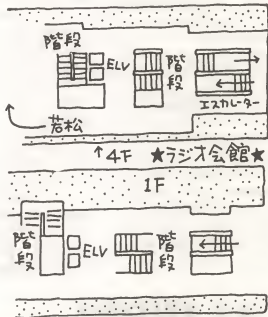 階段
ELV
階段
エスカレーター
若松
↑4F ★ラジオ会館★
1F
階段
ELV
階段